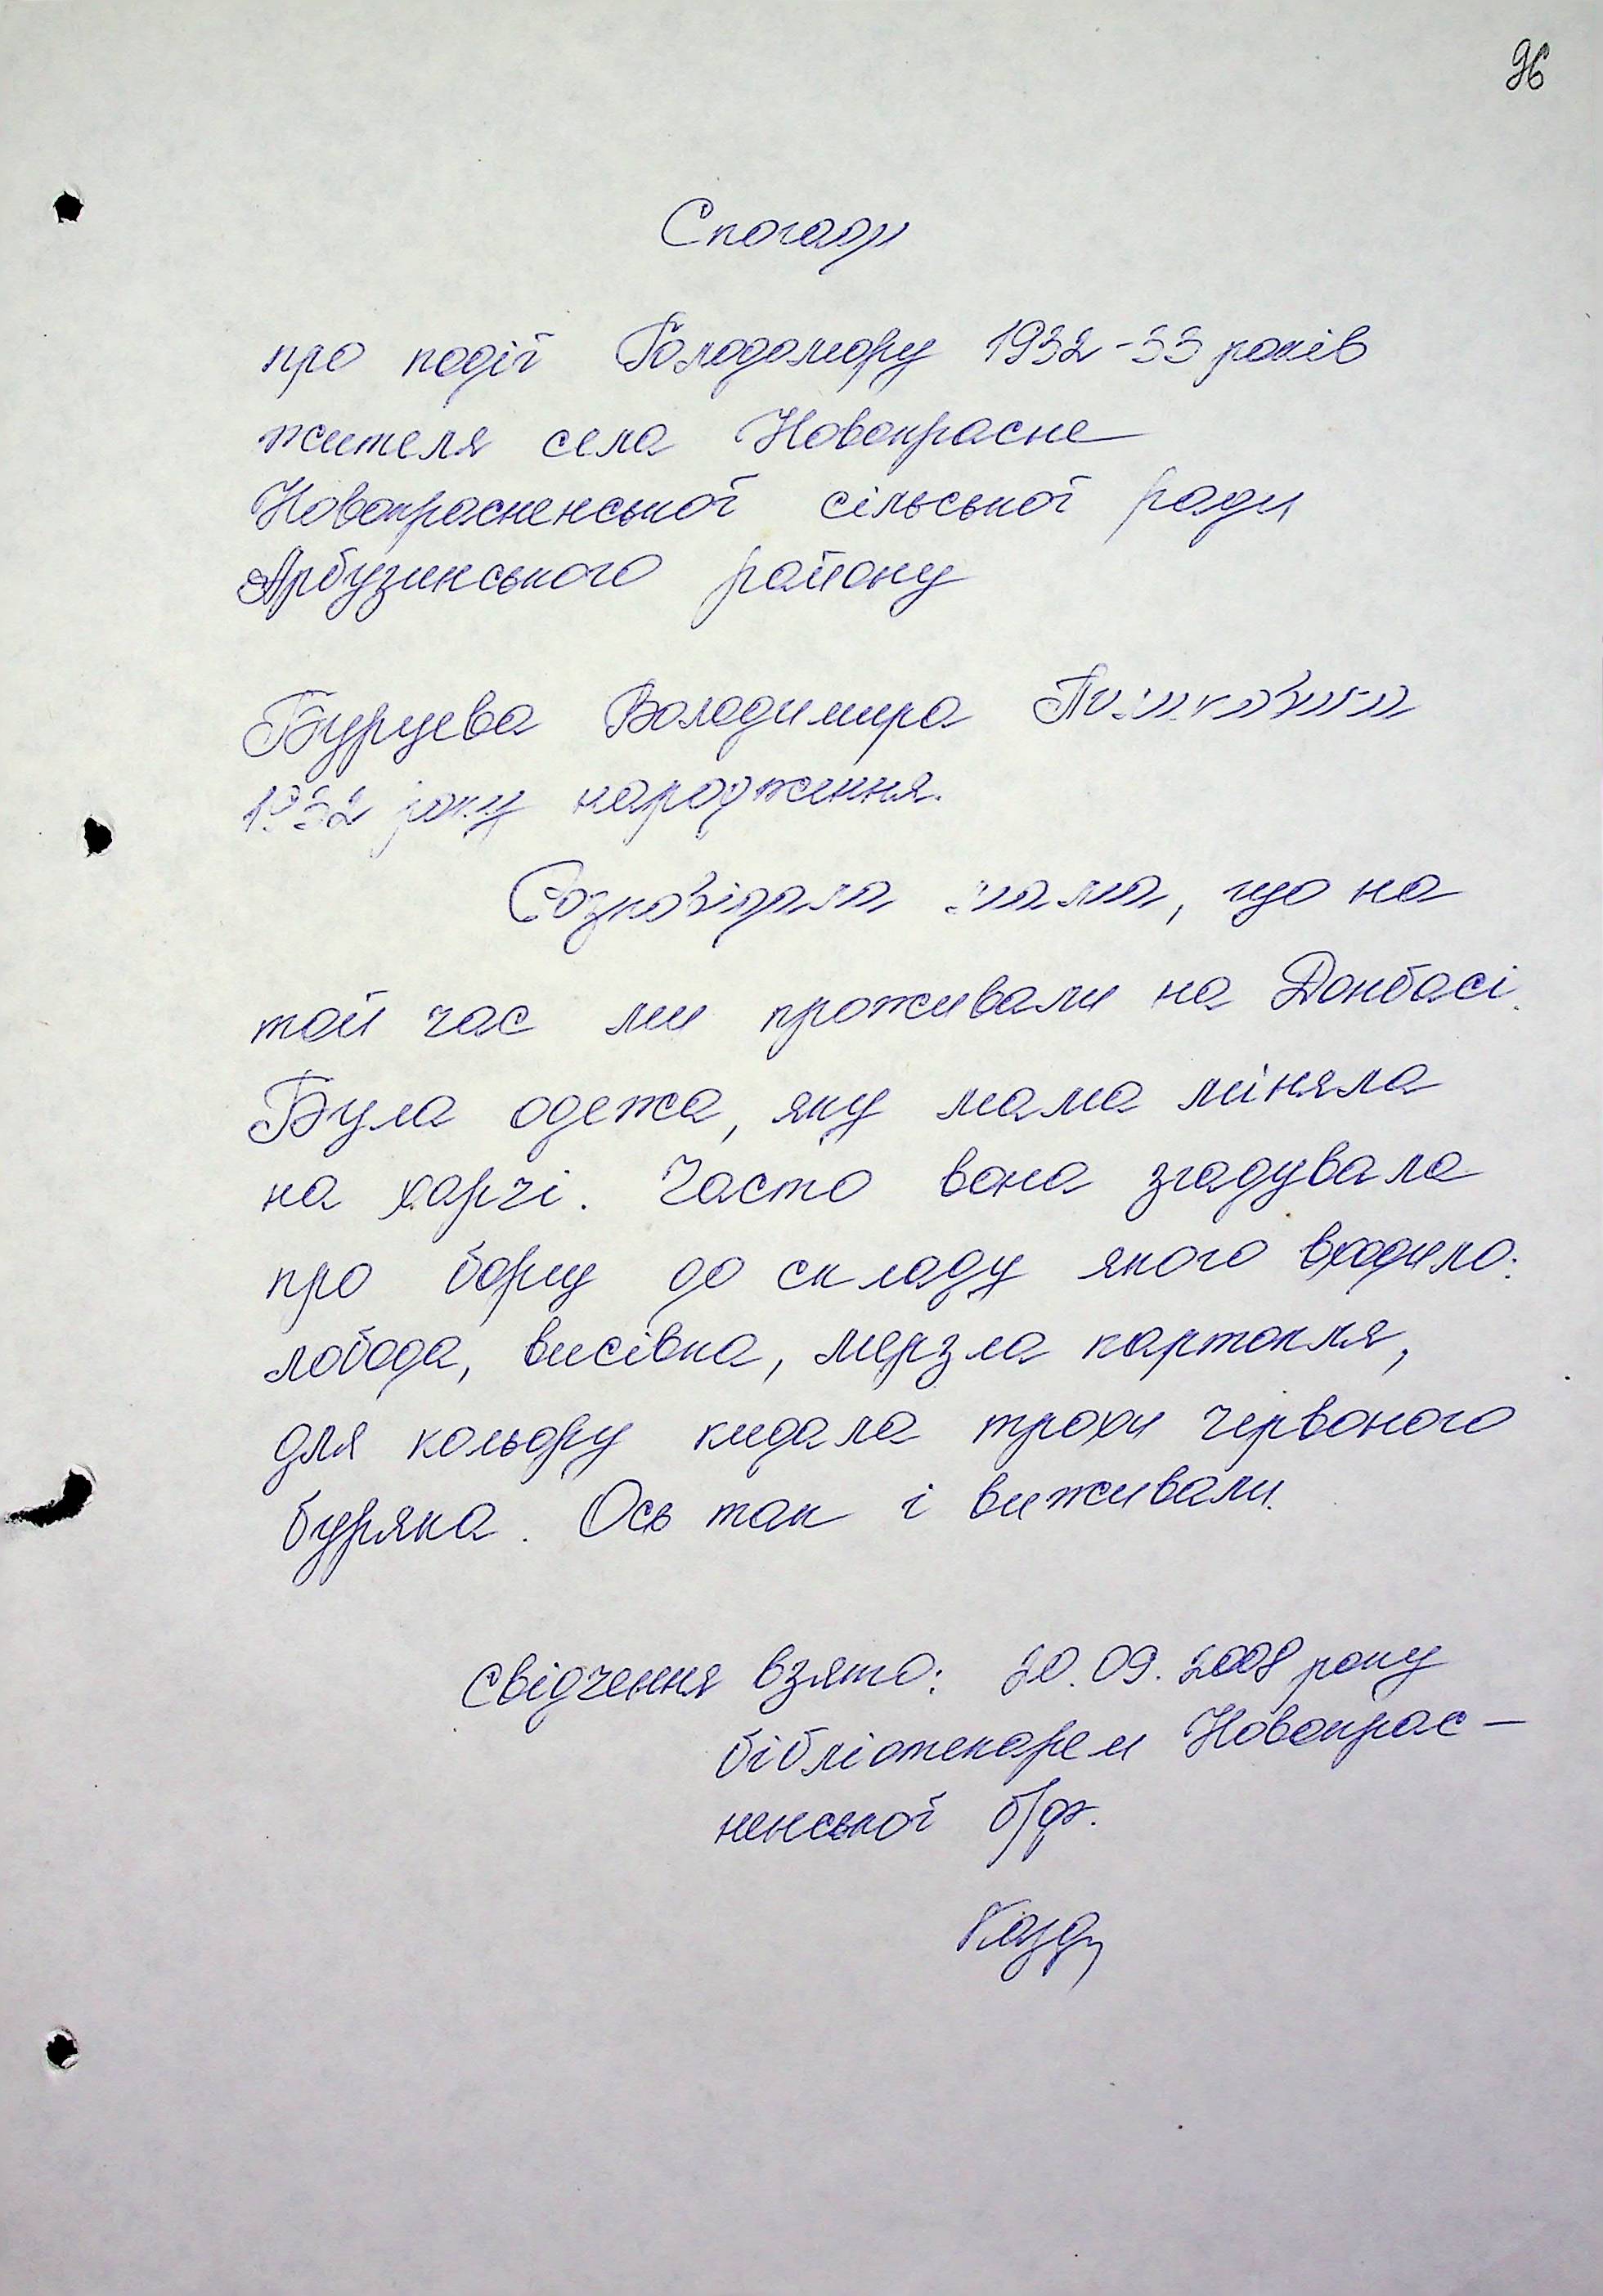 96
Спогади
про події Голодомору 1932-33 років
жителя села Новокрасне
Новокрасненської сільської ради
Арбузинського району
Бурцева Володимира
1932 року народження.
Розповідала мама, що на
той час ми проживали на Донбасі.
Була одежа, яку мама міняла
на харчі. Часто вона згадувала
про борщ до складу якого входило:
лобода, висівка, мерзла картопля,
для кольору кидала трохи червоного
буряка. Ось так і виживали.
Свідчення взято: 20.09.2008 року
бібліотекарем Новокрас-
ненської б/ф.